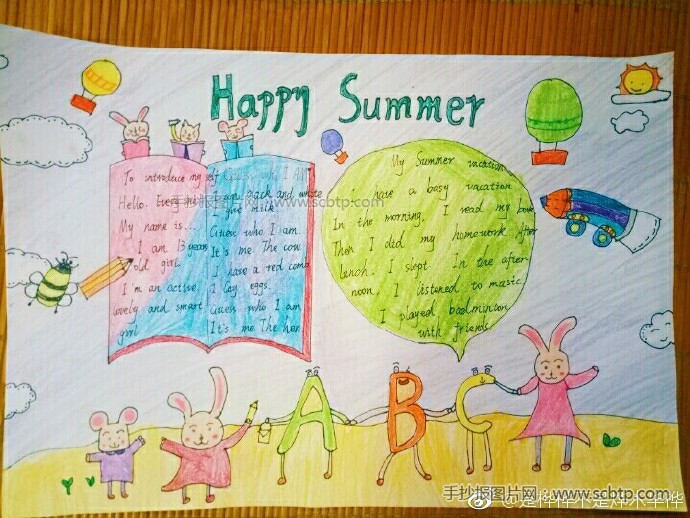 Happy Summer
To introduce myself
Hello. Every
My name is...
I am 13 years
old girl.
I'm an active,
lovely and smart
girl
Guess who I AM
I am black and white
I give milk.
Guess who I am
It's me The cow
I have a red comb
I lay eggs.
Guess who I am
It's me The hen
My Summer vacation
I have a basy vacation
In the morning, I read my book
Then I did my homework After
lunch, I slept. In the after-
noon, I listened to music
I played badminton
with friends
A B C
手抄报图片网 www.scbtp.com
手抄报图片网:www.scbtp.com